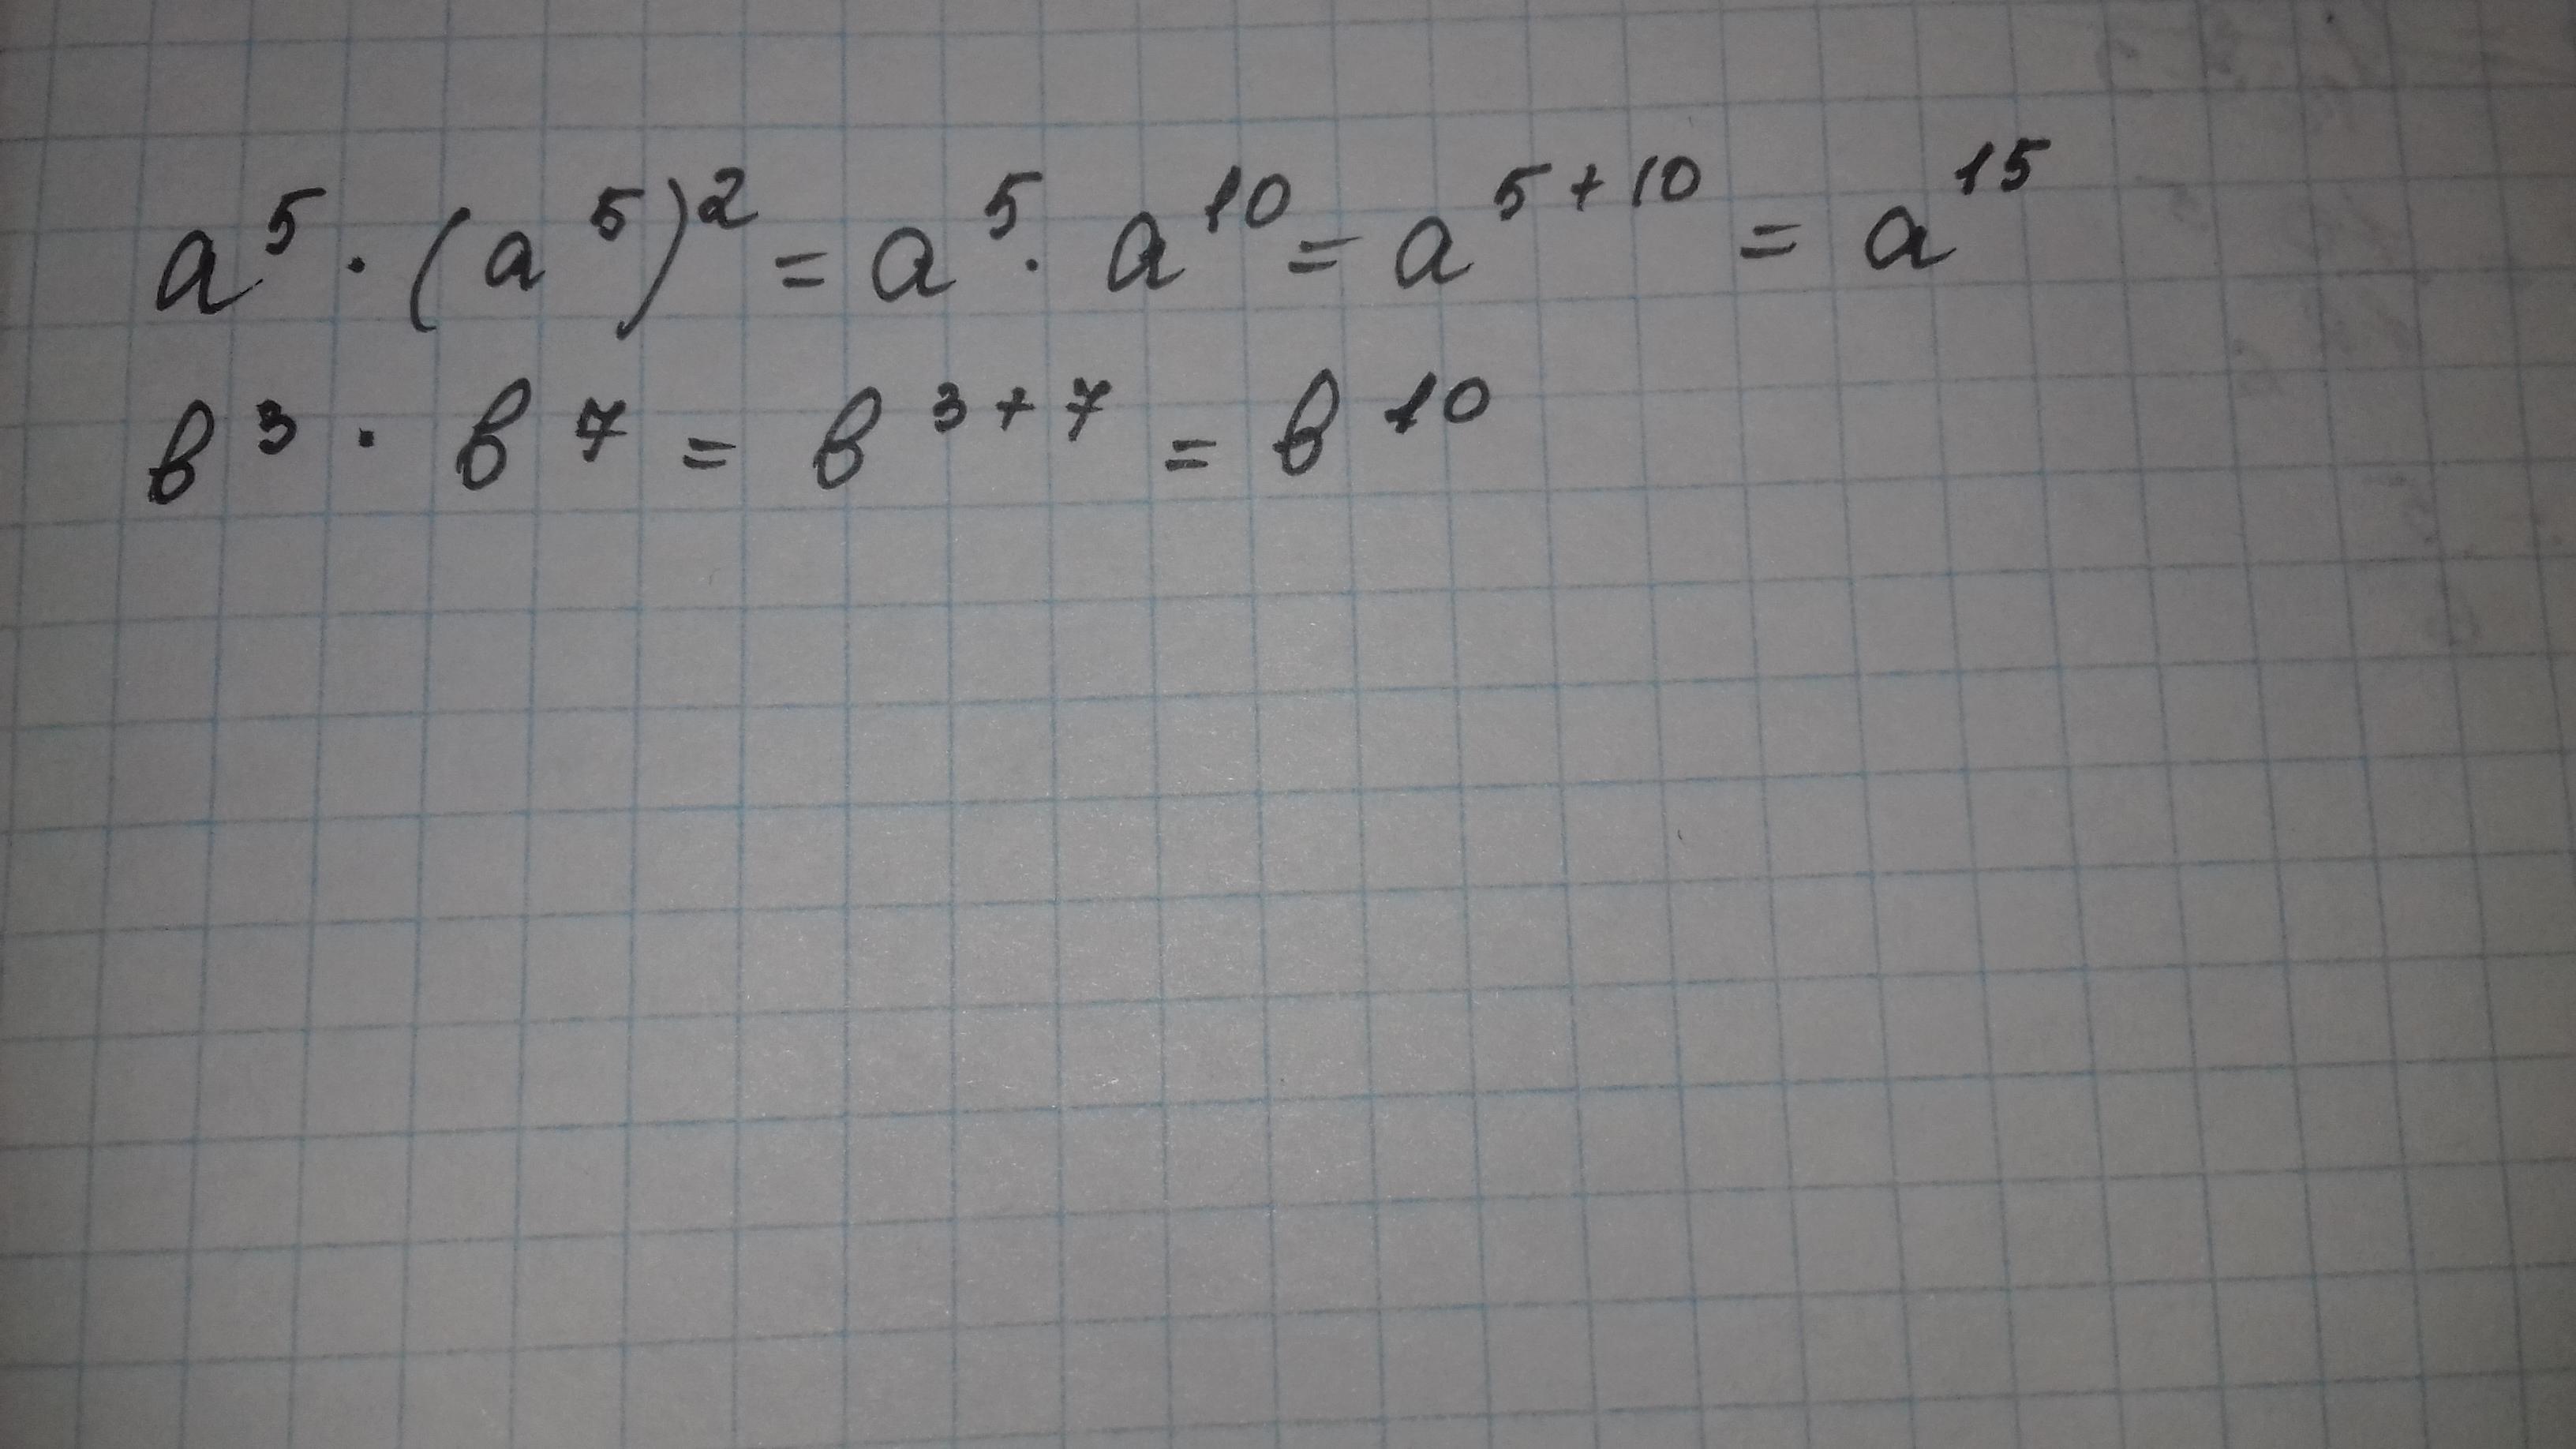 a⁵ · (a⁵)² = a⁵ · a¹⁰ = a⁵⁺¹⁰ = a¹⁵
в³ · в⁷ = в³⁺⁷ = в¹⁰